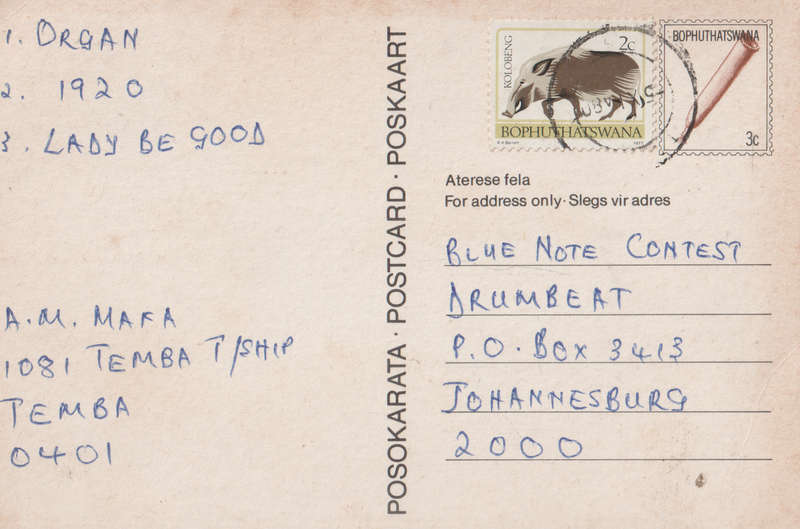 1. ORGAN
2. 1920
3. LADY BE GOOD
A.M. MAFA
1081 TEMBA T/SHIP
TEMBA
0401
POSOKARATA · POSTCARD · POSKAART
KOLOBENG
2c
BOPHUTHATSWANA
1977
BOPHUTHATSWANA
3c
Aterese fela
For address only · Slegs vir adres
BLUE NOTE CONTEST
DRUMBEAT
P.O. BOX 3413
JOHANNESBURG
2000